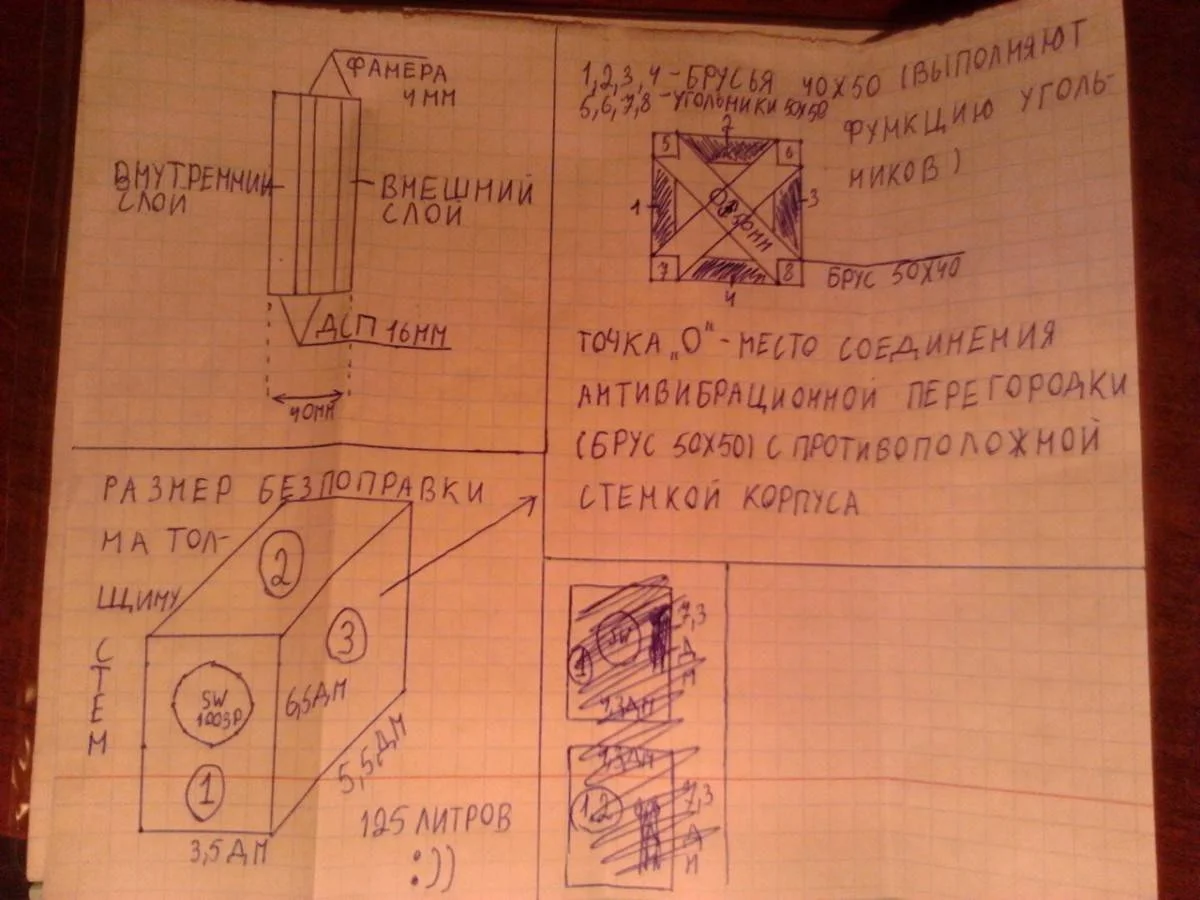 ФАМЕРА
4ММ
ВНУТРЕННИЙ
СЛОЙ
ВНЕШНИЙ
СЛОЙ
ДСП 16ММ
40ММ
1,2,3,4-БРУСЬЯ 40Х50 (ВЫПОЛНЯЮТ
5,6,7,8-УГОЛЬНИКИ 50Х50
ФУНКЦИЮ УГОЛЬ-
НИКОВ)
2
5
6
1
3
О
50ММ
7
8
4
БРУС 50Х40
ТОЧКА „О"-МЕСТО СОЕДИНЕНИЯ
АНТИВИБРАЦИОННОЙ ПЕРЕГОРОДКИ
(БРУС 50Х50) С ПРОТИВОПОЛОЖНОЙ
СТЕНКОЙ КОРПУСА
РАЗМЕР БЕЗПОПРАВКИ
НА ТОЛ-
ЩИНУ
СТЕН
2
3
SW
1003D
1
6,5ДМ
5,5ДМ
3,5ДМ
125 ЛИТРОВ
:))
SW
1
7,3
ДМ
7,3ДМ
1,2
7,3